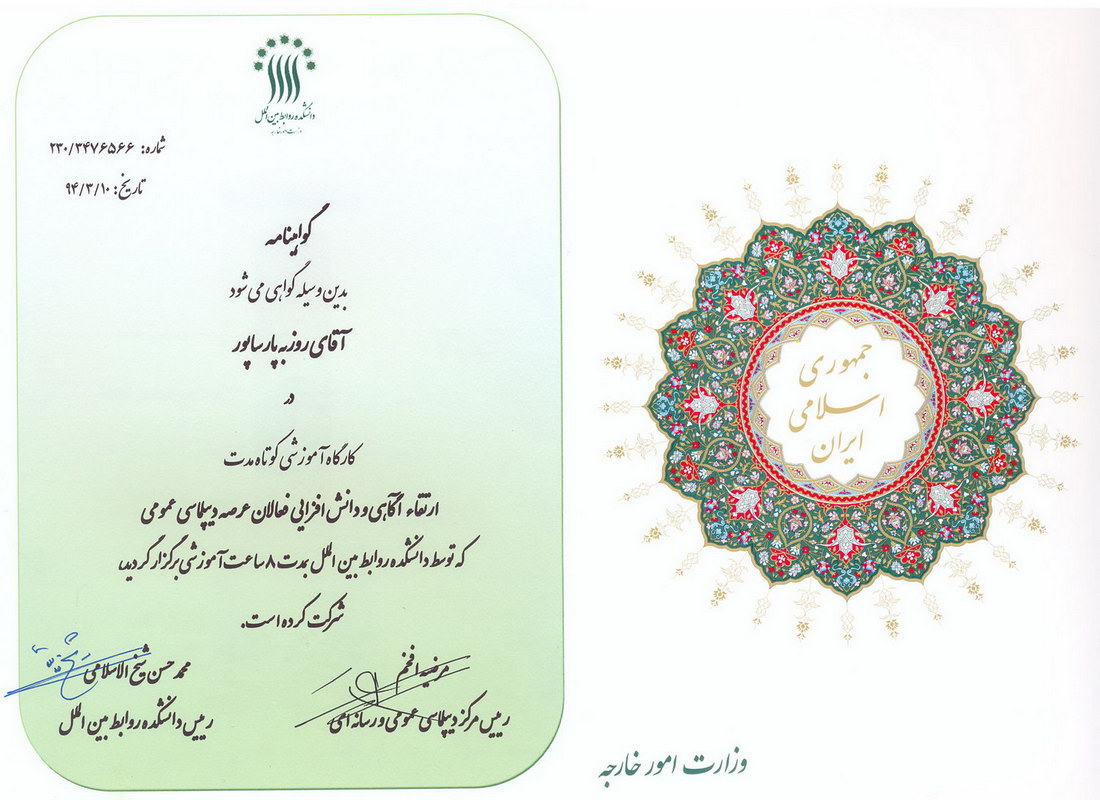 دانشکده روابط بین الملل
وزارت امور خارجه
شماره: ۲۳۰/۳۴۷۶۵۶۶
تاریخ: ۹۴/۳/۱۰
گواهینامه
بدین وسیله گواهی می شود
آقای روزبه پارساپور
در
کارگاه آموزشی کوتاه مدت
ارتقاء آگاهی و دانش افزایی فعالان عرصه دیپلماسی عمومی
که توسط دانشکده روابط بین الملل بمدت ۸ ساعت آموزشی برگزار گردید،
شرکت کرده است.
مرضیه افخم
رییس مرکز دیپلماسی عمومی و رسانه ای
محمد حسن شیخ الاسلامی
رییس دانشکده روابط بین الملل
جمهوری
اسلامی
ایران
وزارت امور خارجه